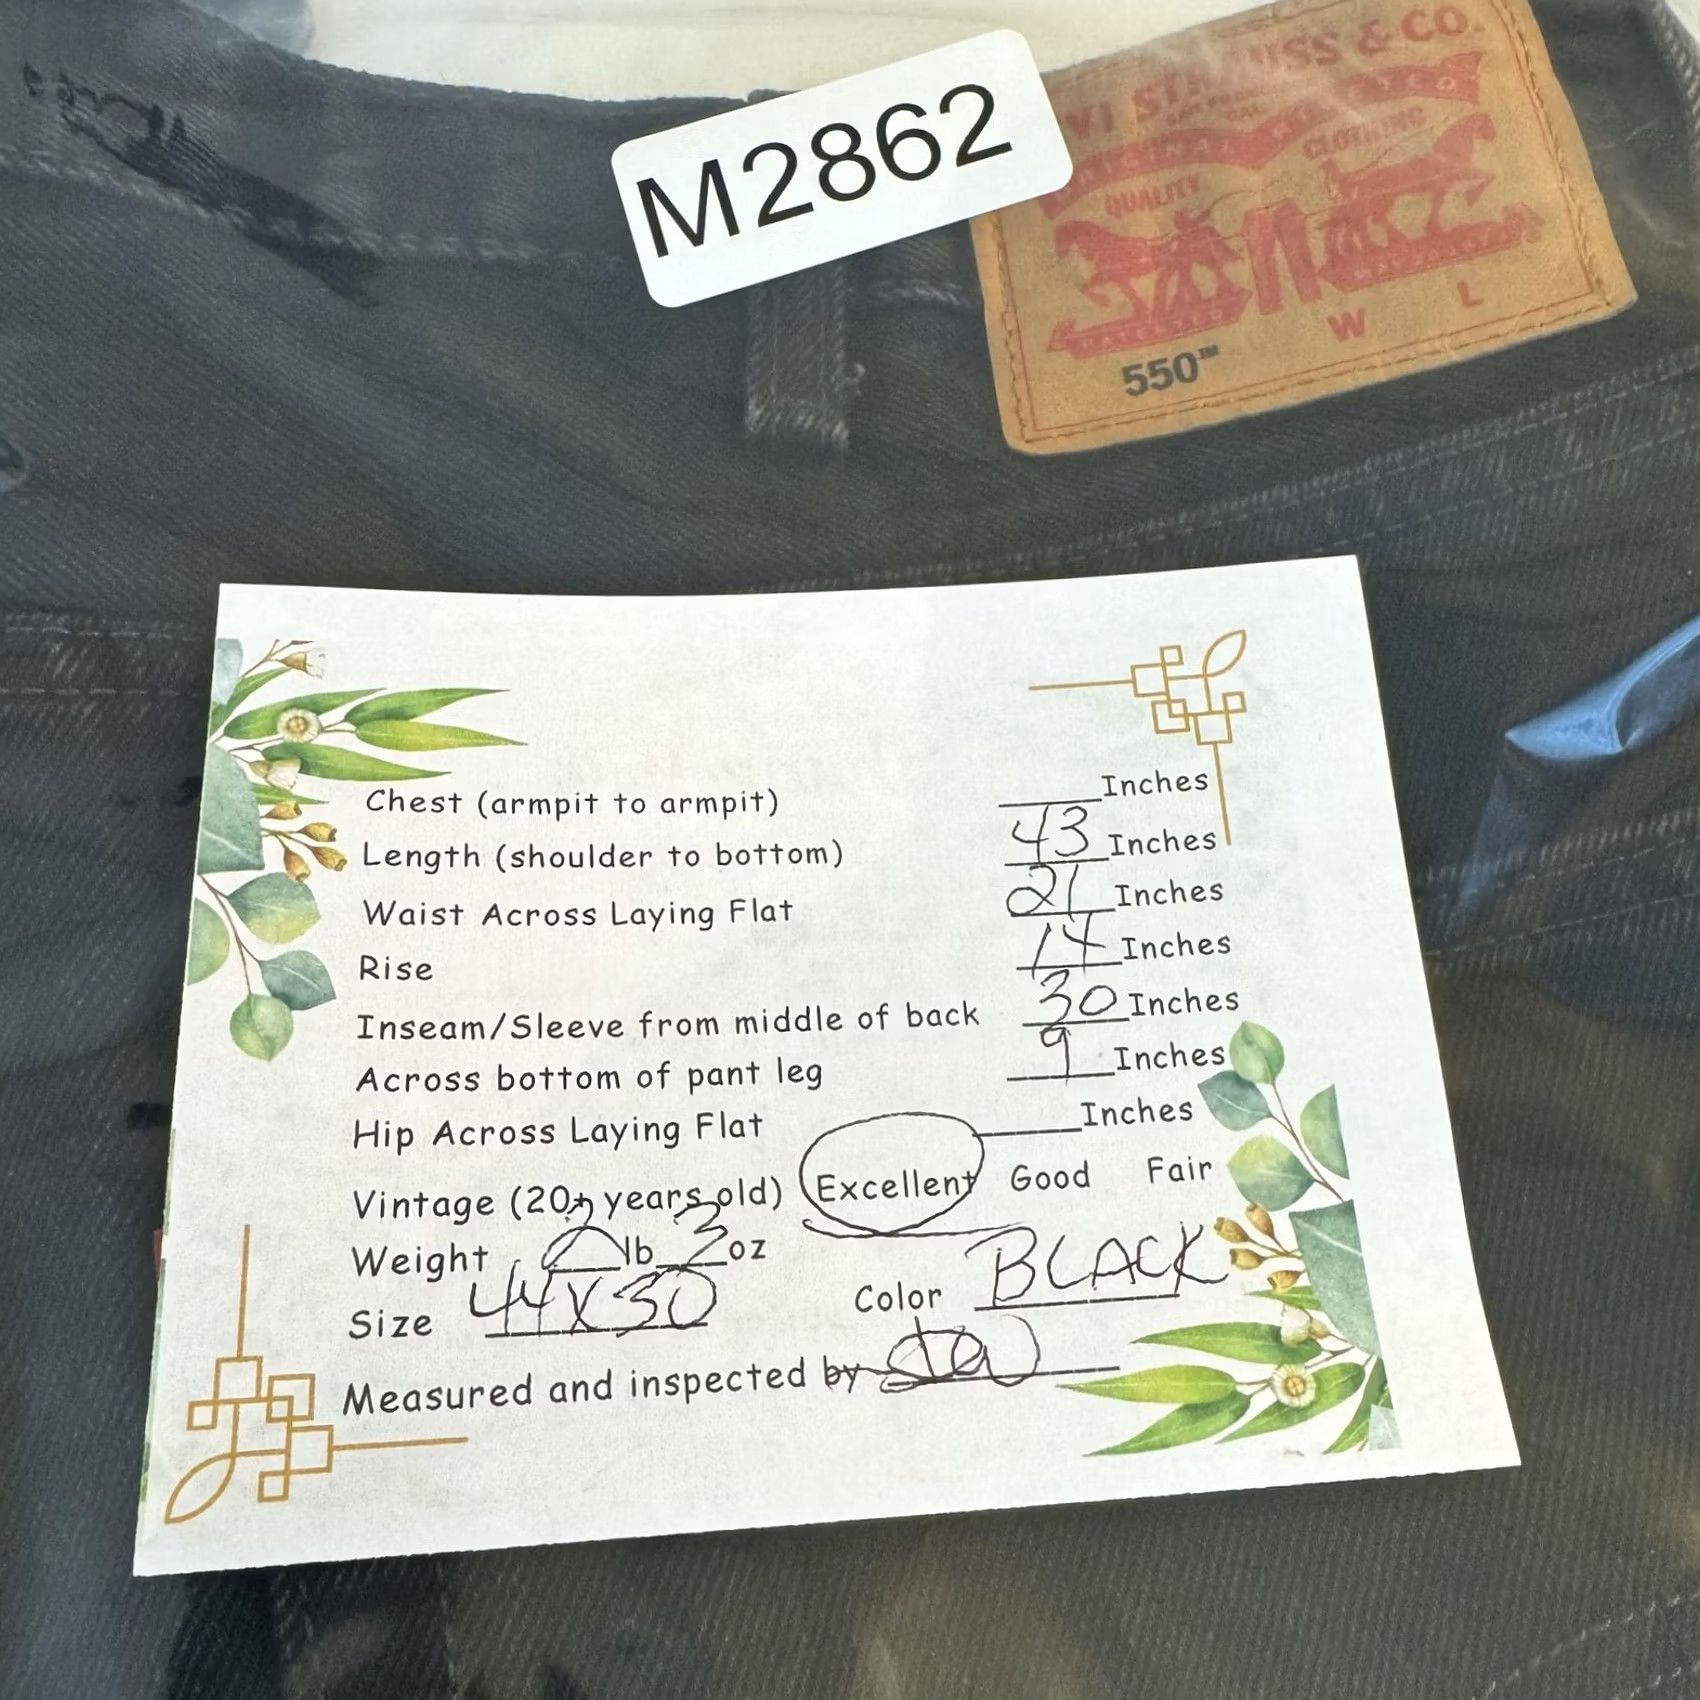 M2862
LEVI STRAUSS & CO.
QUALITY CLOTHING
550™ W L
Chest (armpit to armpit) ____Inches
Length (shoulder to bottom) 43 Inches
Waist Across Laying Flat 21 Inches
Rise 14 Inches
Inseam/Sleeve from middle of back 30 Inches
Across bottom of pant leg 9 Inches
Hip Across Laying Flat ____Inches
Vintage (20+ years old) Excellent Good Fair
Weight 2 lb 3 oz
Size 44X30 Color BLACK
Measured and inspected by